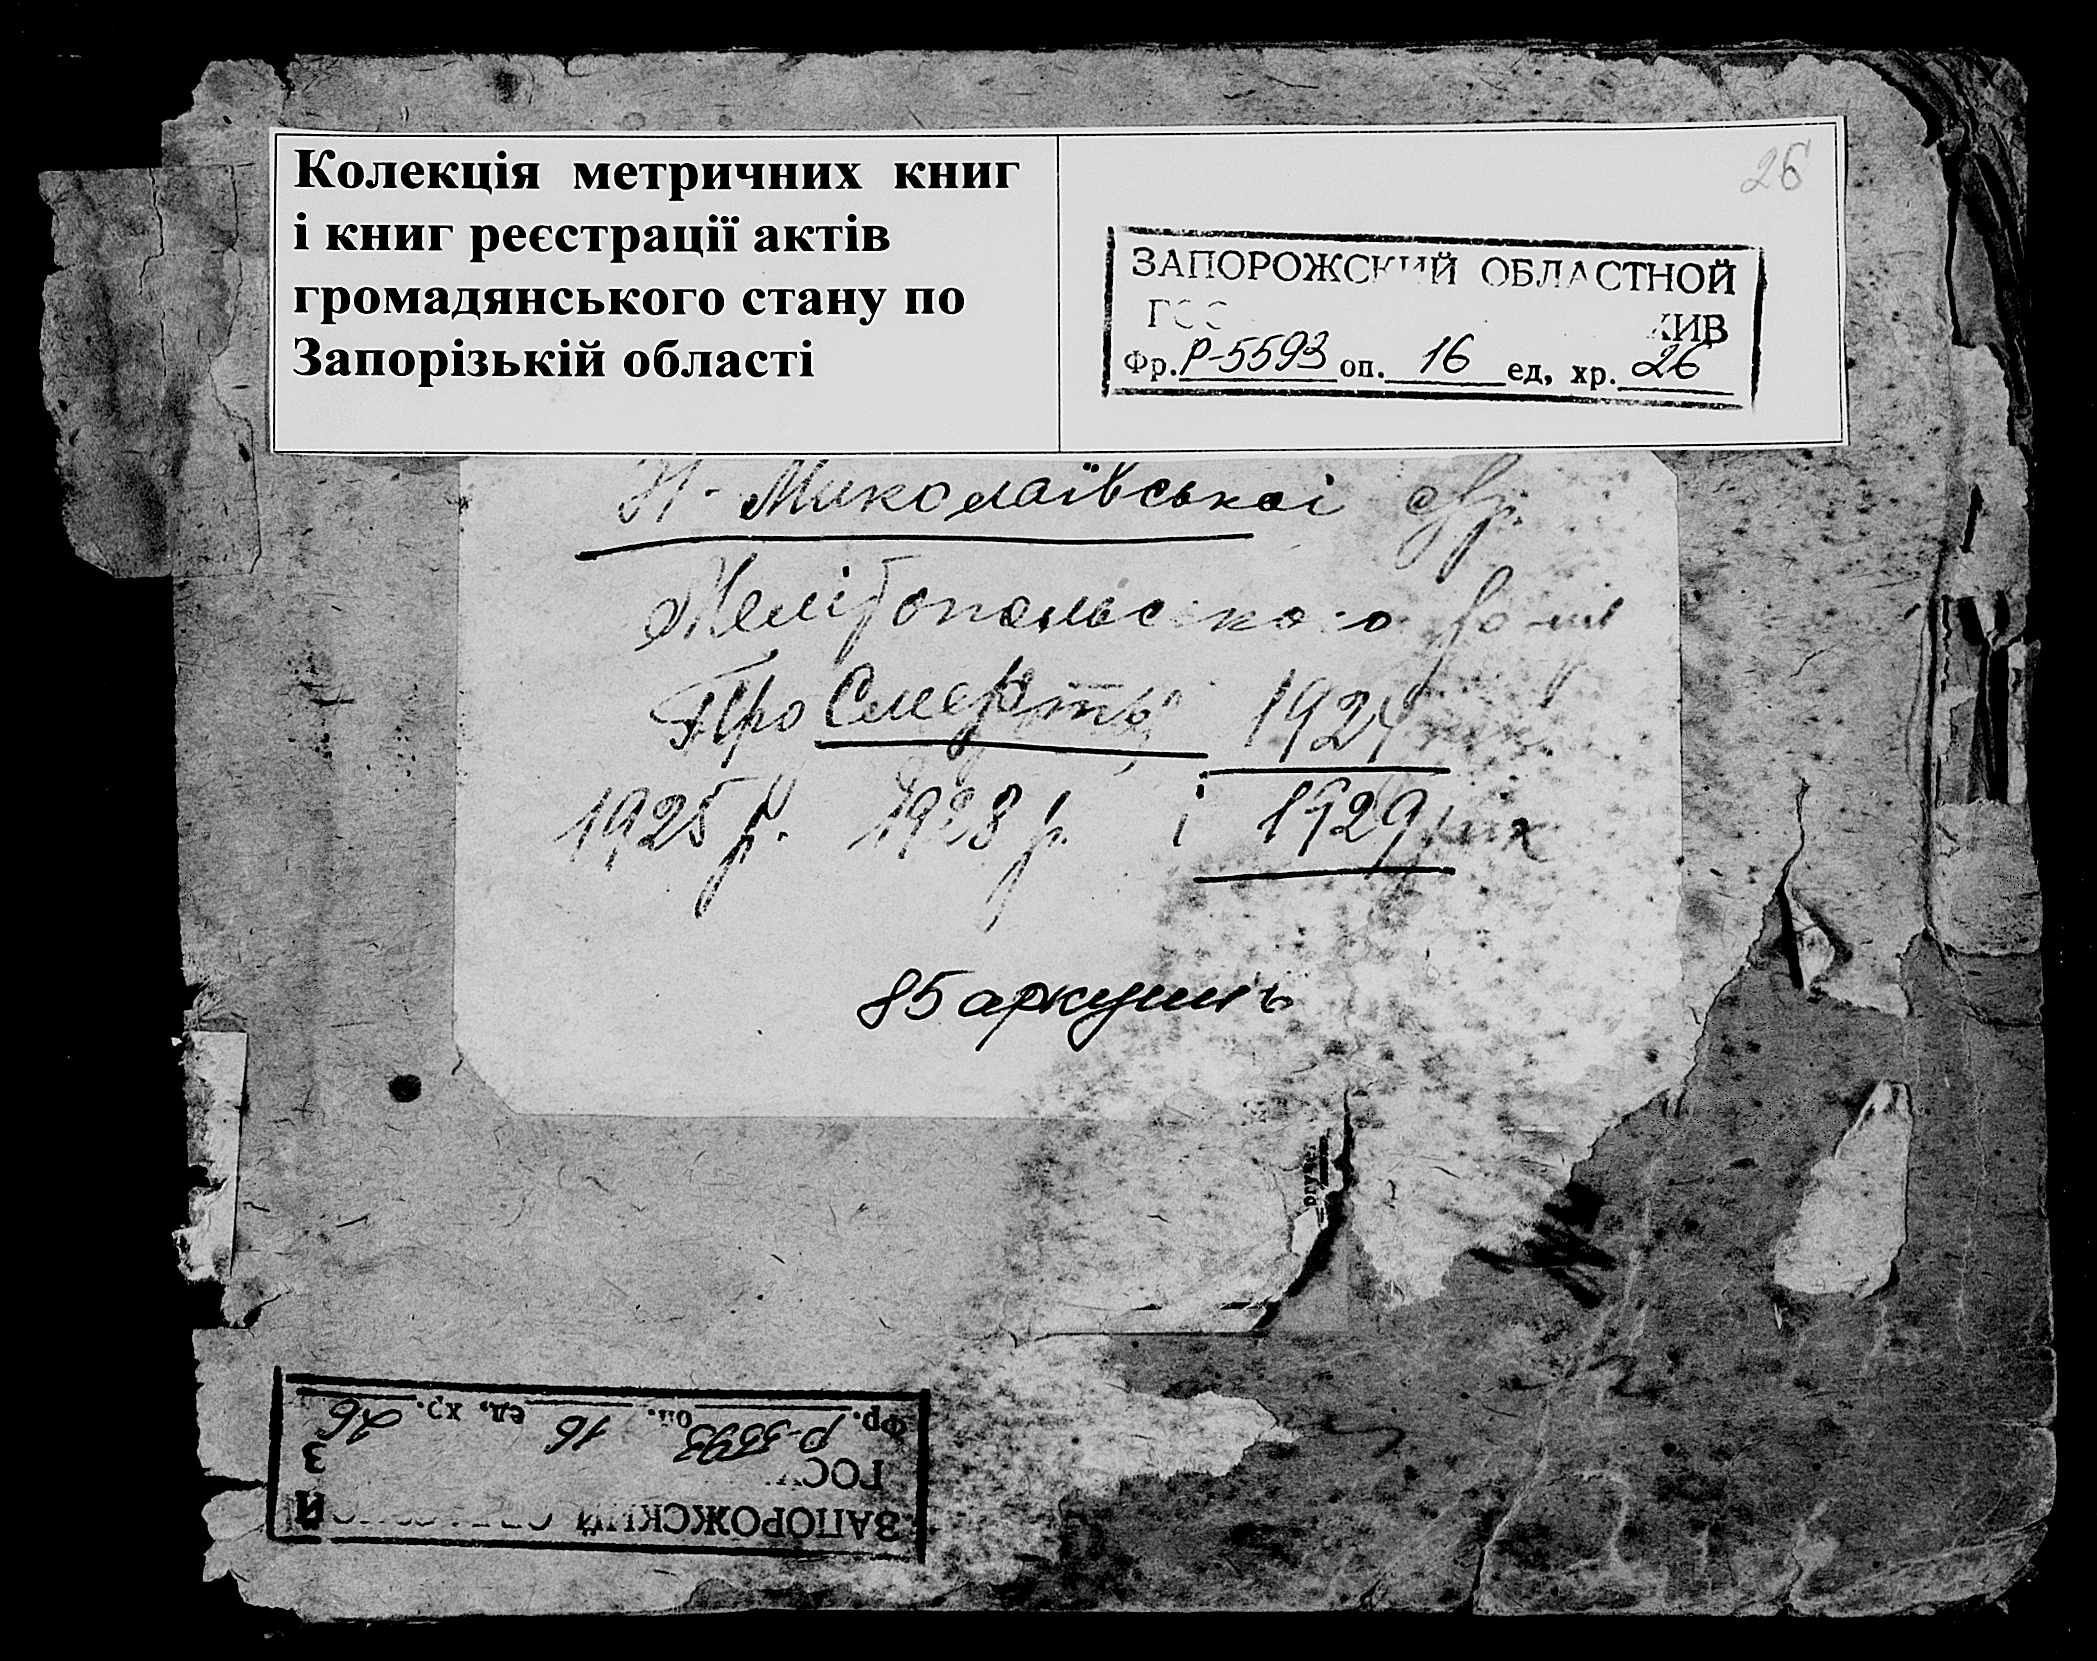 Колекція метричних книг
і книг реєстрації актів
громадянського стану по
Запорізькій області
26
ЗАПОРОЖСКИЙ ОБЛАСТНОЙ
ГОС ХИВ
Фр. Р-5593 оп. 16 ед, хр. 26
Н-Миколаївської
Мелітопольського
Про Смерть 1924
1925 р. 1928 р. і 1929 рік
85 аркушів
Фр. Р-5593 оп. 16 ед, хр. 26
ГОС
ЗАПОРОЖСКИЙ